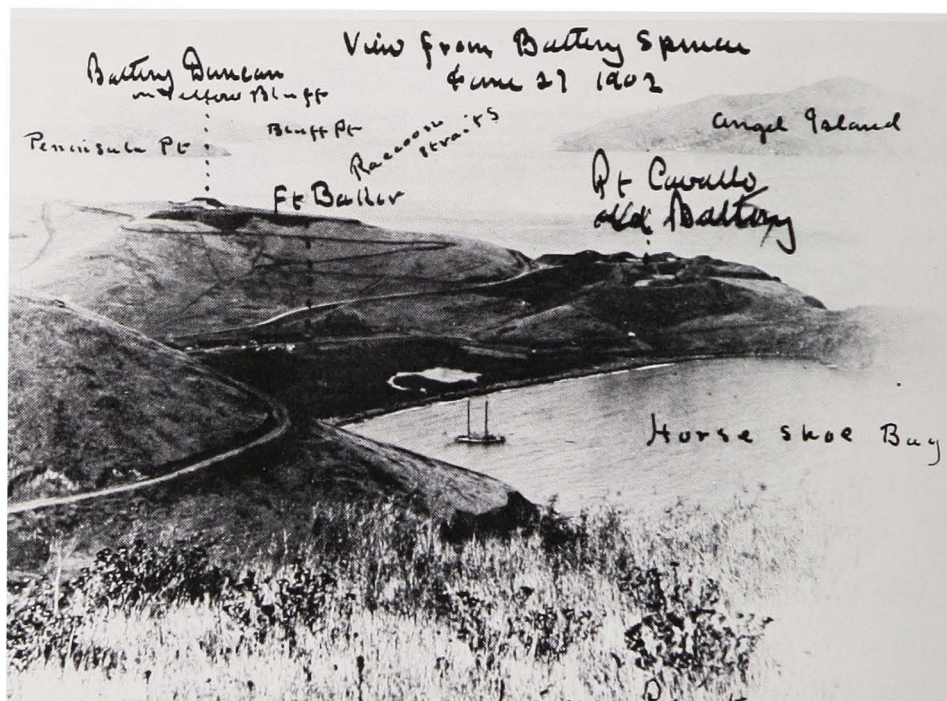 View from Battery Spencer
June 27 1902
Battery Duncan
on Yellow Bluff
Peninsula Pt
Bluff Pt
Raccoon
straits
Angel Island
Ft Baker
Pt Cavallo
old Battery
Horse shoe Bay